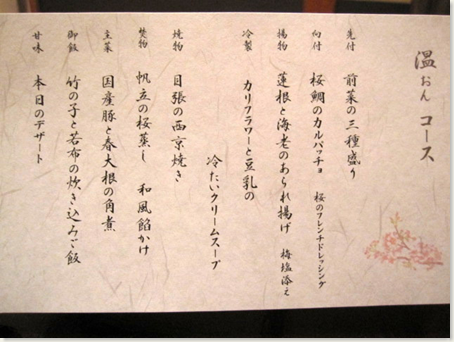 温 おん コース
先付 前菜の三種盛り
向付 桜鯛のカルパッチョ 桜のフレンチドレッシング
揚物 蓮根と海老のあられ揚げ 梅塩添え
冷製 カリフラワーと豆乳の
冷たいクリームスープ
焼物 目張の西京焼き
焚物 帆立の桜蒸し 和風餡かけ
主菜 国産豚と春大根の角煮
御飯 竹の子と若布の炊き込みご飯
甘味 本日のデザート